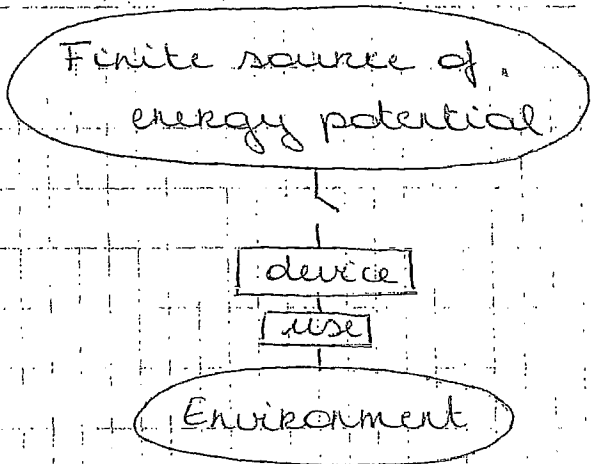 Finite source of
energy potential
device
use
Environment